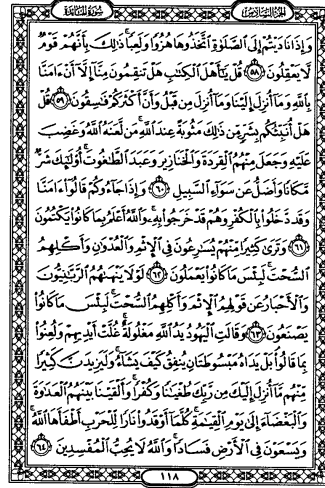 الجزء السادس
سورة المائدة
وَإِذَا نَادَيْتُمْ إِلَى ٱلصَّلَوٰةِ ٱتَّخَذُوهَا هُزُوًا وَلَعِبًا ۚ ذَٰلِكَ بِأَنَّهُمْ قَوْمٌ
لَّا يَعْقِلُونَ ﴿٥٨﴾ قُلْ يَـٰٓأَهْلَ ٱلْكِتَـٰبِ هَلْ تَنقِمُونَ مِنَّآ إِلَّآ أَنْ ءَامَنَّا
بِٱللَّهِ وَمَآ أُنزِلَ إِلَيْنَا وَمَآ أُنزِلَ مِن قَبْلُ وَأَنَّ أَكْثَرَكُمْ فَـٰسِقُونَ ﴿٥٩﴾ قُلْ
هَلْ أُنَبِّئُكُم بِشَرٍّ مِّن ذَٰلِكَ مَثُوبَةً عِندَ ٱللَّهِ ۚ مَن لَّعَنَهُ ٱللَّهُ وَغَضِبَ
عَلَيْهِ وَجَعَلَ مِنْهُمُ ٱلْقِرَدَةَ وَٱلْخَنَازِيرَ وَعَبَدَ ٱلطَّـٰغُوتَ ۚ أُو۟لَـٰٓئِكَ شَرٌّ
مَّكَانًا وَأَضَلُّ عَن سَوَآءِ ٱلسَّبِيلِ ﴿٦٠﴾ وَإِذَا جَآءُوكُمْ قَالُوٓا۟ ءَامَنَّا
وَقَد دَّخَلُوا۟ بِٱلْكُفْرِ وَهُمْ قَدْ خَرَجُوا۟ بِهِۦ ۚ وَٱللَّهُ أَعْلَمُ بِمَا كَانُوا۟ يَكْتُمُونَ
﴿٦١﴾ وَتَرَىٰ كَثِيرًا مِّنْهُمْ يُسَـٰرِعُونَ فِى ٱلْإِثْمِ وَٱلْعُدْوَٰنِ وَأَكْلِهِمُ
ٱلسُّحْتَ ۚ لَبِئْسَ مَا كَانُوا۟ يَعْمَلُونَ ﴿٦٢﴾ لَوْلَا يَنْهَىٰهُمُ ٱلرَّبَّـٰنِيُّونَ
وَٱلْأَحْبَارُ عَن قَوْلِهِمُ ٱلْإِثْمَ وَأَكْلِهِمُ ٱلسُّحْتَ ۚ لَبِئْسَ مَا كَانُوا۟
يَصْنَعُونَ ﴿٦٣﴾ وَقَالَتِ ٱلْيَهُودُ يَدُ ٱللَّهِ مَغْلُولَةٌ ۚ غُلَّتْ أَيْدِيهِمْ وَلُعِنُوا۟
بِمَا قَالُوا۟ ۘ بَلْ يَدَاهُ مَبْسُوطَتَانِ يُنفِقُ كَيْفَ يَشَآءُ ۚ وَلَيَزِيدَنَّ كَثِيرًا
مِّنْهُم مَّآ أُنزِلَ إِلَيْكَ مِن رَّبِّكَ طُغْيَـٰنًا وَكُفْرًا ۚ وَأَلْقَيْنَا بَيْنَهُمُ ٱلْعَدَٰوَةَ
وَٱلْبَغْضَآءَ إِلَىٰ يَوْمِ ٱلْقِيَـٰمَةِ ۚ كُلَّمَآ أَوْقَدُوا۟ نَارًا لِّلْحَرْبِ أَطْفَأَهَا ٱللَّهُ ۚ
وَيَسْعَوْنَ فِى ٱلْأَرْضِ فَسَادًا ۚ وَٱللَّهُ لَا يُحِبُّ ٱلْمُفْسِدِينَ ﴿٦٤﴾
١١٨